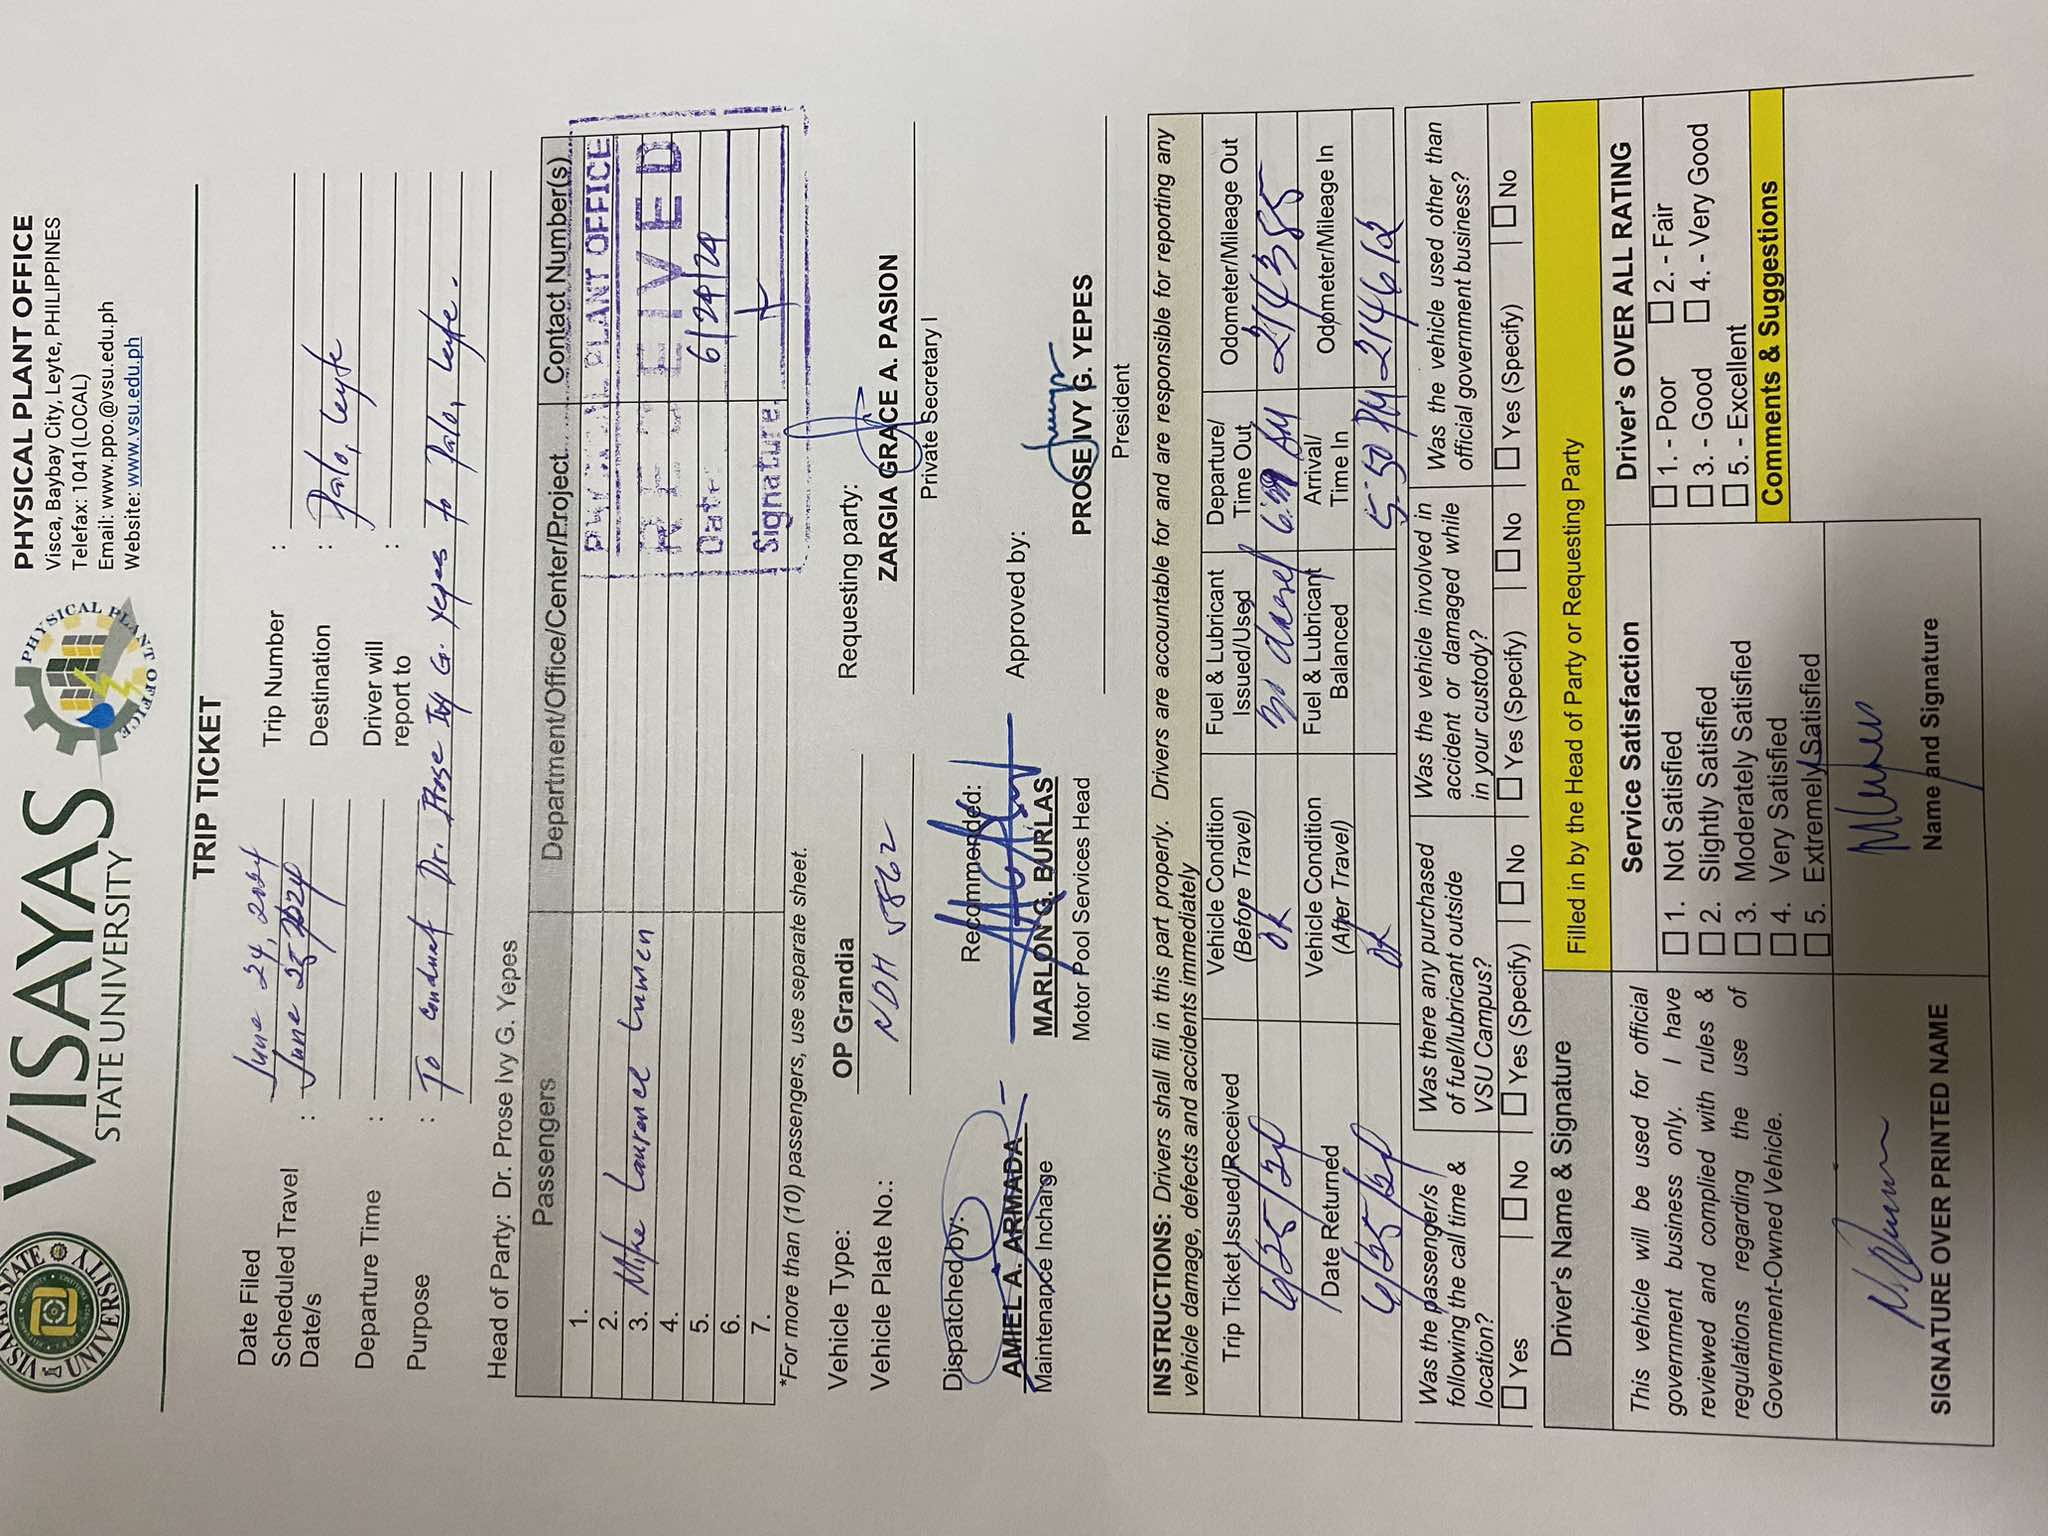 VISAYAS
STATE UNIVERSITY
PHYSICAL PLANT OFFICE
PHYSICAL PLANT OFFICE
Visca, Baybay City, Leyte, PHILIPPINES
Telefax: 1041(LOCAL)
Email: www.ppo.@vsu.edu.ph
Website: www.vsu.edu.ph
TRIP TICKET
Date Filed June 24, 2024 Trip Number :
Scheduled Travel Date/s : June 25, 2024 Destination : Palo, Leyte
Departure Time : Driver will report to :
Purpose : To conduct Dr. Prose Ivy G. Yepes to Palo, Leyte.
Head of Party: Dr. Prose Ivy G. Yepes
Passengers Department/Office/Center/Project Contact Number(s)
1.
2.
3. Mike Laurence Lumen
4.
5.
6.
7.
PHYSICAL PLANT OFFICE
RECEIVED
Date 6/24/24
Signature
*For more than (10) passengers, use separate sheet.
Vehicle Type: OP Grandia Requesting party:
Vehicle Plate No.: NDH 5862 ZARGIA GRACE A. PASION
Private Secretary I
Dispatched by: Recommended: Approved by:
AMIEL A. ARMADA MARLON G. BURLAS PROSE IVY G. YEPES
Maintenance Incharge Motor Pool Services Head President
INSTRUCTIONS: Drivers shall fill in this part properly. Drivers are accountable for and are responsible for reporting any
vehicle damage, defects and accidents immediately
Trip Ticket Issued/Received Vehicle Condition (Before Travel) Fuel & Lubricant Issued/Used Departure/ Time Out Odometer/Mileage Out
6/25/24 OK diesel AM 214385
Date Returned Vehicle Condition (After Travel) Fuel & Lubricant Balanced Arrival/ Time In Odometer/Mileage In
6/25/24 OK 5:50 PM 214612
Was the passenger/s following the call time & location? Was there any purchased of fuel/lubricant outside VSU Campus? Was the vehicle involved in accident or damaged while in your custody? Was the vehicle used other than official government business?
Yes No Yes (Specify) No Yes (Specify) No Yes (Specify) No
Driver's Name & Signature Filled in by the Head of Party or Requesting Party
This vehicle will be used for official
government business only. I have
reviewed and complied with rules &
regulations regarding the use of
Government-Owned Vehicle.
Service Satisfaction
1. Not Satisfied
2. Slightly Satisfied
3. Moderately Satisfied
4. Very Satisfied
5. Extremely Satisfied
Driver's OVER ALL RATING
1. - Poor 2. - Fair
3. - Good 4. - Very Good
5. - Excellent
Comments & Suggestions
SIGNATURE OVER PRINTED NAME Name and Signature